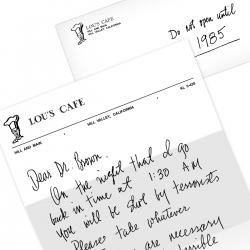 LOU'S CAFE
HILL AND MAIN
HILL VALLEY, CALIFORNIA
Do not open until
1985
LOU'S CAFE
HILL AND MAIN
HILL VALLEY, CALIFORNIA
Dear Dr. Brown,
On the night that I go
back in time at 1:30 AM
You will be shot by terrorists
Please take whatever
are necessary